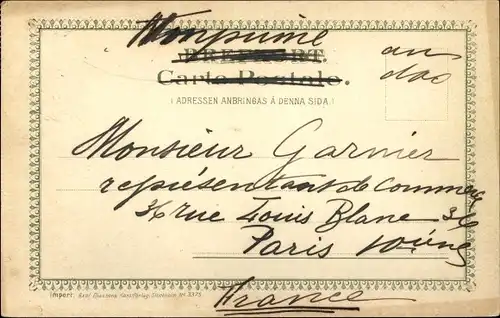 Imprimé
BREFKORT.
an
Carte Postale.
dos
(ADRESSEN ANBRINGAS Å DENNA SIDA)
Monsieur Garnier
représentant de commerce
36 rue Louis Blanc 36
Paris
France
Import: Axel Eliassons Konstförlag, Stockholm Nr 3375